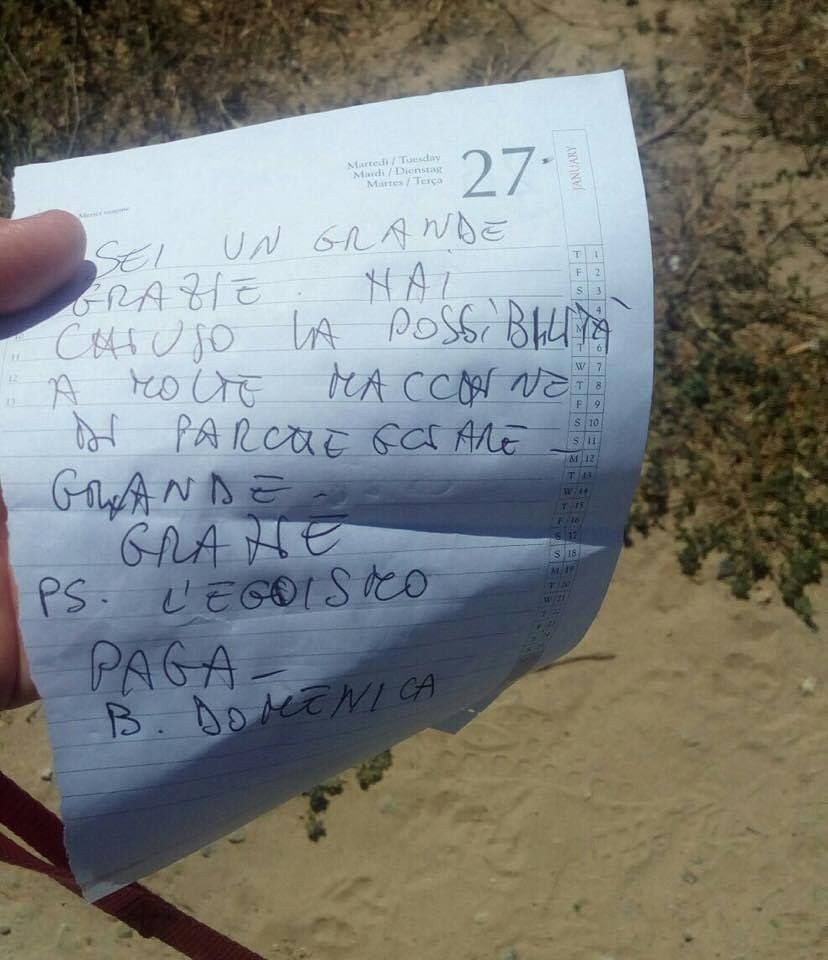 Martedì / Tuesday
Mardi / Dienstag
Martes / Terça
27
JANUARY
SEI UN GRANDE
GRAZIE. HAI
CHIUSO LA POSSIBILITÀ
A MOLTE MACCHINE
DI PARCHEGGIARE -
GRANDE -
GRAZIE
PS. L'EGOISMO
PAGA -
B. DOMENICA
T 1
F 2
S 3
S 4
M 5
T 6
W 7
T 8
F 9
S 10
S 11
M 12
T 13
W 14
T 15
F 16
S 17
S 18
M 19
T 20
W 21